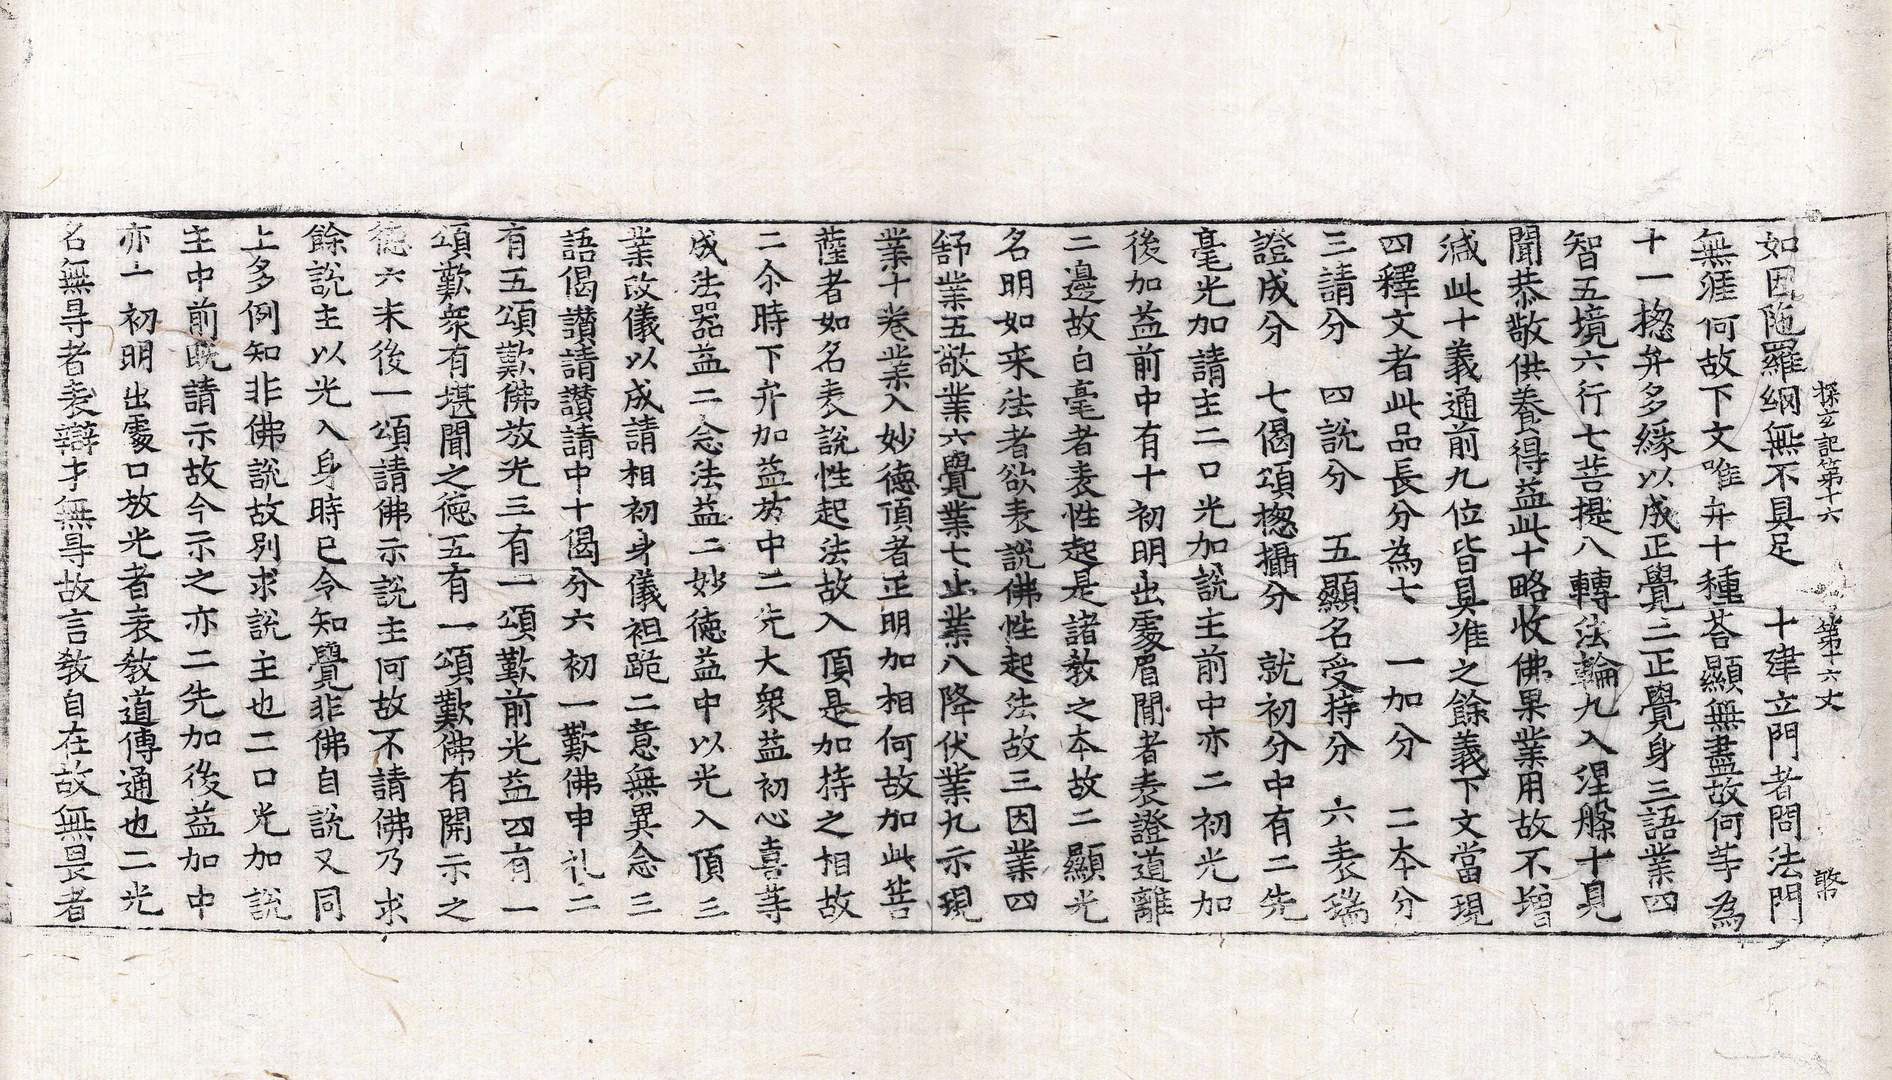 探玄記第十六　第十六丈　幣
如因陁羅網無不具足　十建立門者問法門
無涯何故下文唯弁十種荅顯無盡故何䓁為
十一揔弁多緣以成正覺二正覺身三語業四
智五境六行七菩提八轉法輪九入涅槃十見
聞恭敬供養得益此十略收佛果業用故不增
減此十義通前九位皆具准之餘義下文當現
四釋文者此品長分為七　一加分　二本分
三請分　四說分　五顯名受持分　六表瑞
證成分　七偈頌揔攝分　就初分中有二先
毫光加請主二口光加說主前中亦二初光加
後加益前中有十初明出處眉間者表證道離
二邊故白毫者表性起是諸教之本故二顯光
名明如来法者欲表說佛性起法故三因業四
舒業五敬業六覺業七止業八降伏業九示現
業十卷業入妙德頂者正明加相何故加此菩
薩者如名表說性起法故入頂是加持之相故
二尒時下弁加益於中二先大衆益初心喜䓁
成法器益二念法益二妙德益中以光入頂三
業改儀以成請相初身儀袒跪二意無異念三
語偈讃請讃請中十偈分六初一歎佛申礼二
有五頌歎佛放光三有一頌歎前光益四有一
頌歎衆有堪聞之德五有一頌歎佛有開示之
德六末後一頌請佛示說主何故不請佛乃求
餘說主以光入身時已令知覺非佛自說又同
上多例知非佛說故別求說主也二口光加說
主中前旣請示故今示之亦二先加後益加中
亦一初明出處口放光者表教道傳通也二光
名無㝵者表辯才無㝵故言教自在故無畏者